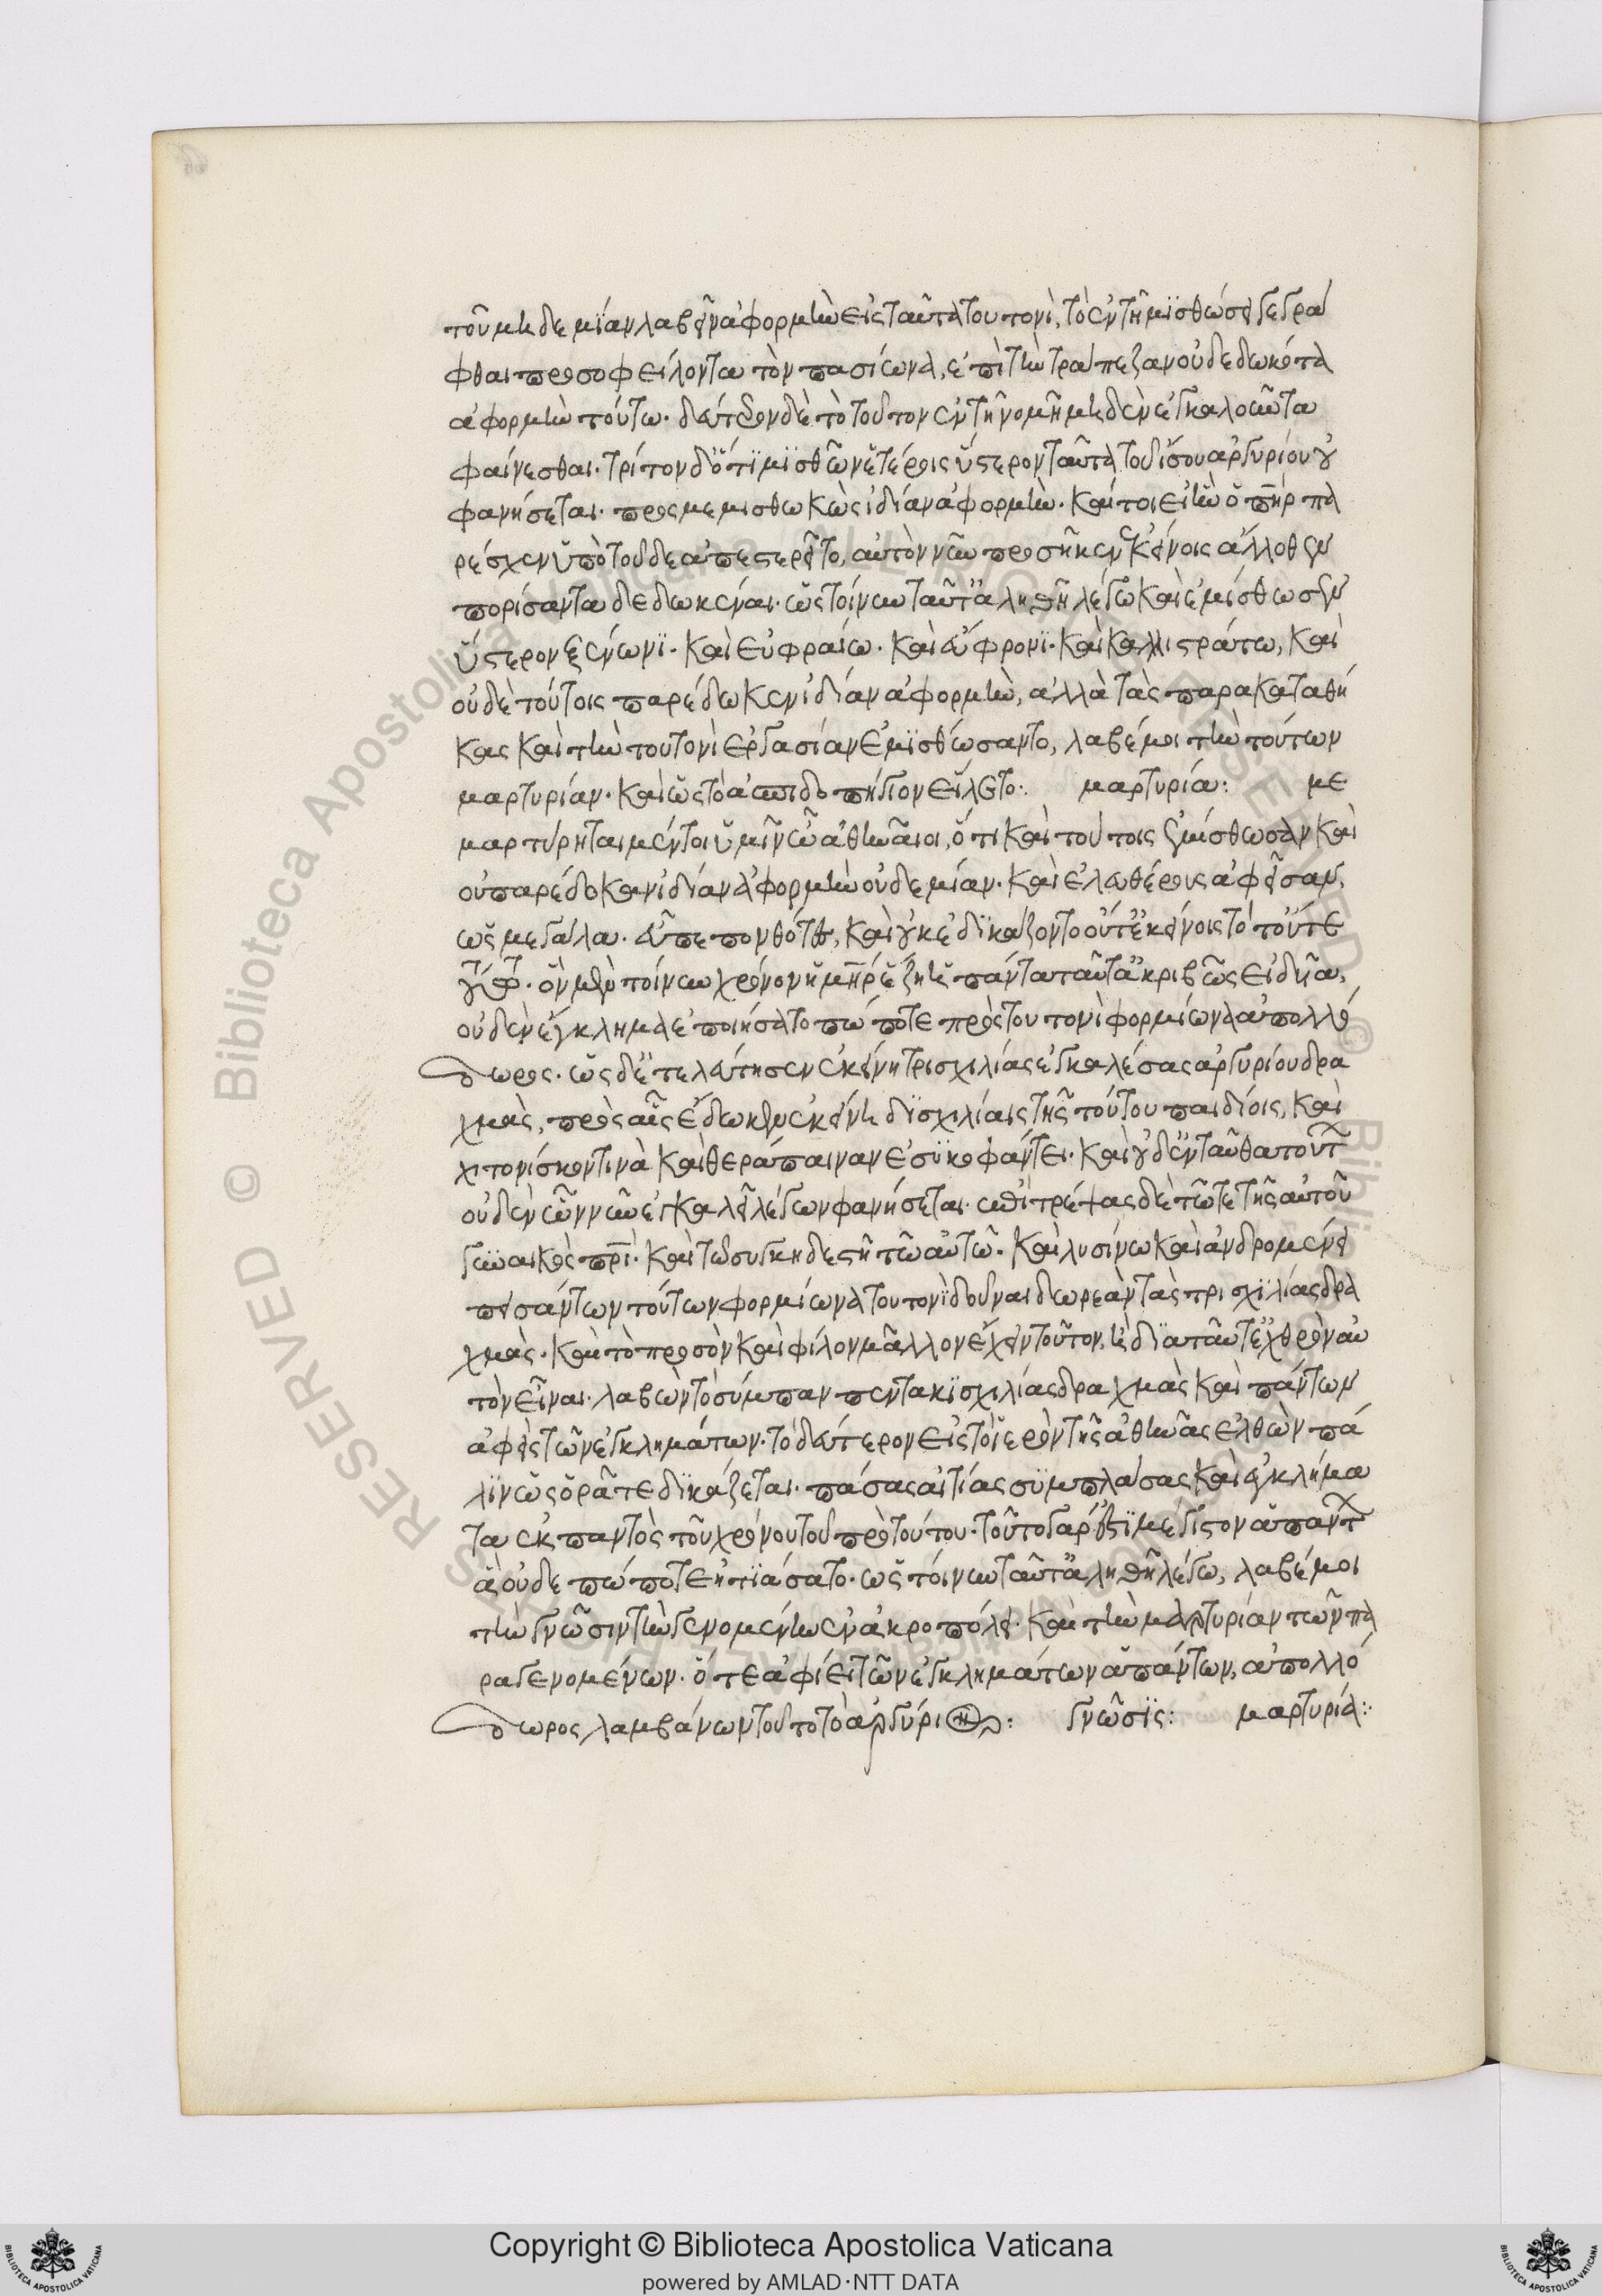 τοῦ μηδεμίαν λαβεῖν ἀφορμὴν εἰς ταῦτα τουτονὶ, τὸ ἐν τῇ μισθώσει γεγρά
φθαι προσοφείλοντα τὸν πασίωνα, ἐπὶ τὴν τράπεζαν οὐ δεδωκότα
ἀφορμὴν τούτω. δεύτερον δὲ τὸ τοῦτον ἐν τῇ νομῇ μηδὲν ἐγκαλοῦντα
φαίνεσθαι. τρίτον δ' ὅτι μισθῶν ἑτέροις ὕστερον ταῦτα τοῦ ἴσου ἀργυρίου οὐ
φανήσεται. προσμεμισθωκὼς ἰδίαν ἀφορμὴν. καίτοι εἰ ἣν ὁ πῆρ πα
ρέσχεν ὑπὸ τοῦδε ἀπεστερεῖτο, αὐτὸν νῦν προσῆκεν κείνοις ἄλλοθεν
πορίσαντα δεδωκέναι. ὡς τοίνυν ταῦτ' ἀληθῆ λέγω καὶ ἐμίσθωσεν
ὕστερον ξένωνι. καὶ εὐφραίω. καὶ εὔφρονι. καὶ καλλιστράτω, καὶ
οὐδὲ τούτοις παρέδωκεν ἰδίαν ἀφορμὴν, ἀλλὰ τὰς παρακαταθή
κας καὶ τὴν τουτονὶ ἐργασίαν ἐμισθώσαντο, λαβέ μοι τὴν τούτων
μαρτυρίαν. καὶ ὡς τὸ ἀσπιδοπήγιον εἵλετο. μαρτυρία: με
μαρτύρηται μέντοι ὑμῖν ὦ ἀθηναῖοι, ὅτι καὶ τούτοις ἐμίσθωσαν καὶ
οὐ παρέδοκαν ἰδίαν ἀφορμὴν οὐδεμίαν. καὶ ἐλευθέρους ἀφεῖσαν,
ὡς μεγάλα. εὖ πεπονθότες, καὶ οὐκ ἐδικάζοντο οὔτ' ἐκείνοις τότ' οὔτε
τούτω. ὃν μὲν τοίνυν χρόνον ἡ μῆρ ἔζη ἡ πάντα ταῦτ' ἀκριβῶς εἰδυῖα,
οὐδὲν ἔγκλημα ἐποιήσατο πώποτε πρὸς τουτονὶ φορμίωνα ἀπολλό
δωρος. ὡς δ' ἐτελεύτησεν ἐκείνη τρισχιλίας ἐγκαλέσας ἀργυρίου δρα
χμὰς, πρὸς αἷς ἔδωκεν ἐκείνη δισχιλίαις τῆς τούτου παιδίοις, καὶ
χιτονίσκον τινὰ καὶ θεράπαιναν ἐσυκοφάντει. καὶ οὐδ' ἐνταῦθα τούτων
οὐδὲν ὧν νῦν ἐγκαλεῖ λέγων φανήσεται. ἐπιτρέψας δὲ τῶ τε τῆς αὐτοῦ
γυναικὸς πρὶ. καὶ τῶ συγκηδεστῆ τῶ αὐτῶ. καὶ λυσίνω καὶ ἀνδρομένει
πεισάντων τούτων φορμίωνα τουτονὶ δοῦναι δωρεὰν τὰς τρισχιλίας δρα
χμὰς. καὶ τὸ προσὸν καὶ φίλον μᾶλλον ἔχειν τοῦτον, ἢ διὰ ταῦτ' ἐχθρὸν αὐ
τὸν εἶναι. λαβὼν τὸ σύμπαν πεντακισχιλίας δραχμὰς καὶ πάντων
ἀφεὶς τῶν ἐγκλημάτων. τὸ δεύτερον εἰς τὸ ἱερὸν τῆς ἀθηνᾶς ἐλθὼν πά
λιν ὡς ὁρᾶτε δικάζεται. πάσας αἰτίας συμπλάσας καὶ ἐγκλήμα
τα ἐκ παντὸς τοῦ χρόνου τοῦ πρὸ τούτου. τοῦτο γάρ ἐστι μέγιστον ἁπάντων
ἃ οὐδεπώποτε ἠτιάσατο. ὡς τοίνυν ταῦτ' ἀληθῆ λέγω, λαβέ μοι
τὴν γνῶσιν τὴν γενομένην ἐν ἀκροπόλει. καὶ τὴν μαρτυρίαν τῶν πα
ραγενομένων. ὅτε ἀφίει τῶν ἐγκλημάτων ἁπάντων, ἀπολλό
δωρος λαμβάνων τοῦτο τὸ ἀργύριον: γνῶσις: μαρτυρία:
Copyright © Biblioteca Apostolica Vaticana
powered by AMLAD·NTT DATA